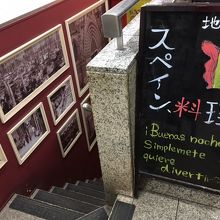 地
スペイン料理
¡Buenas noche
Simplemete
quiere
diverti